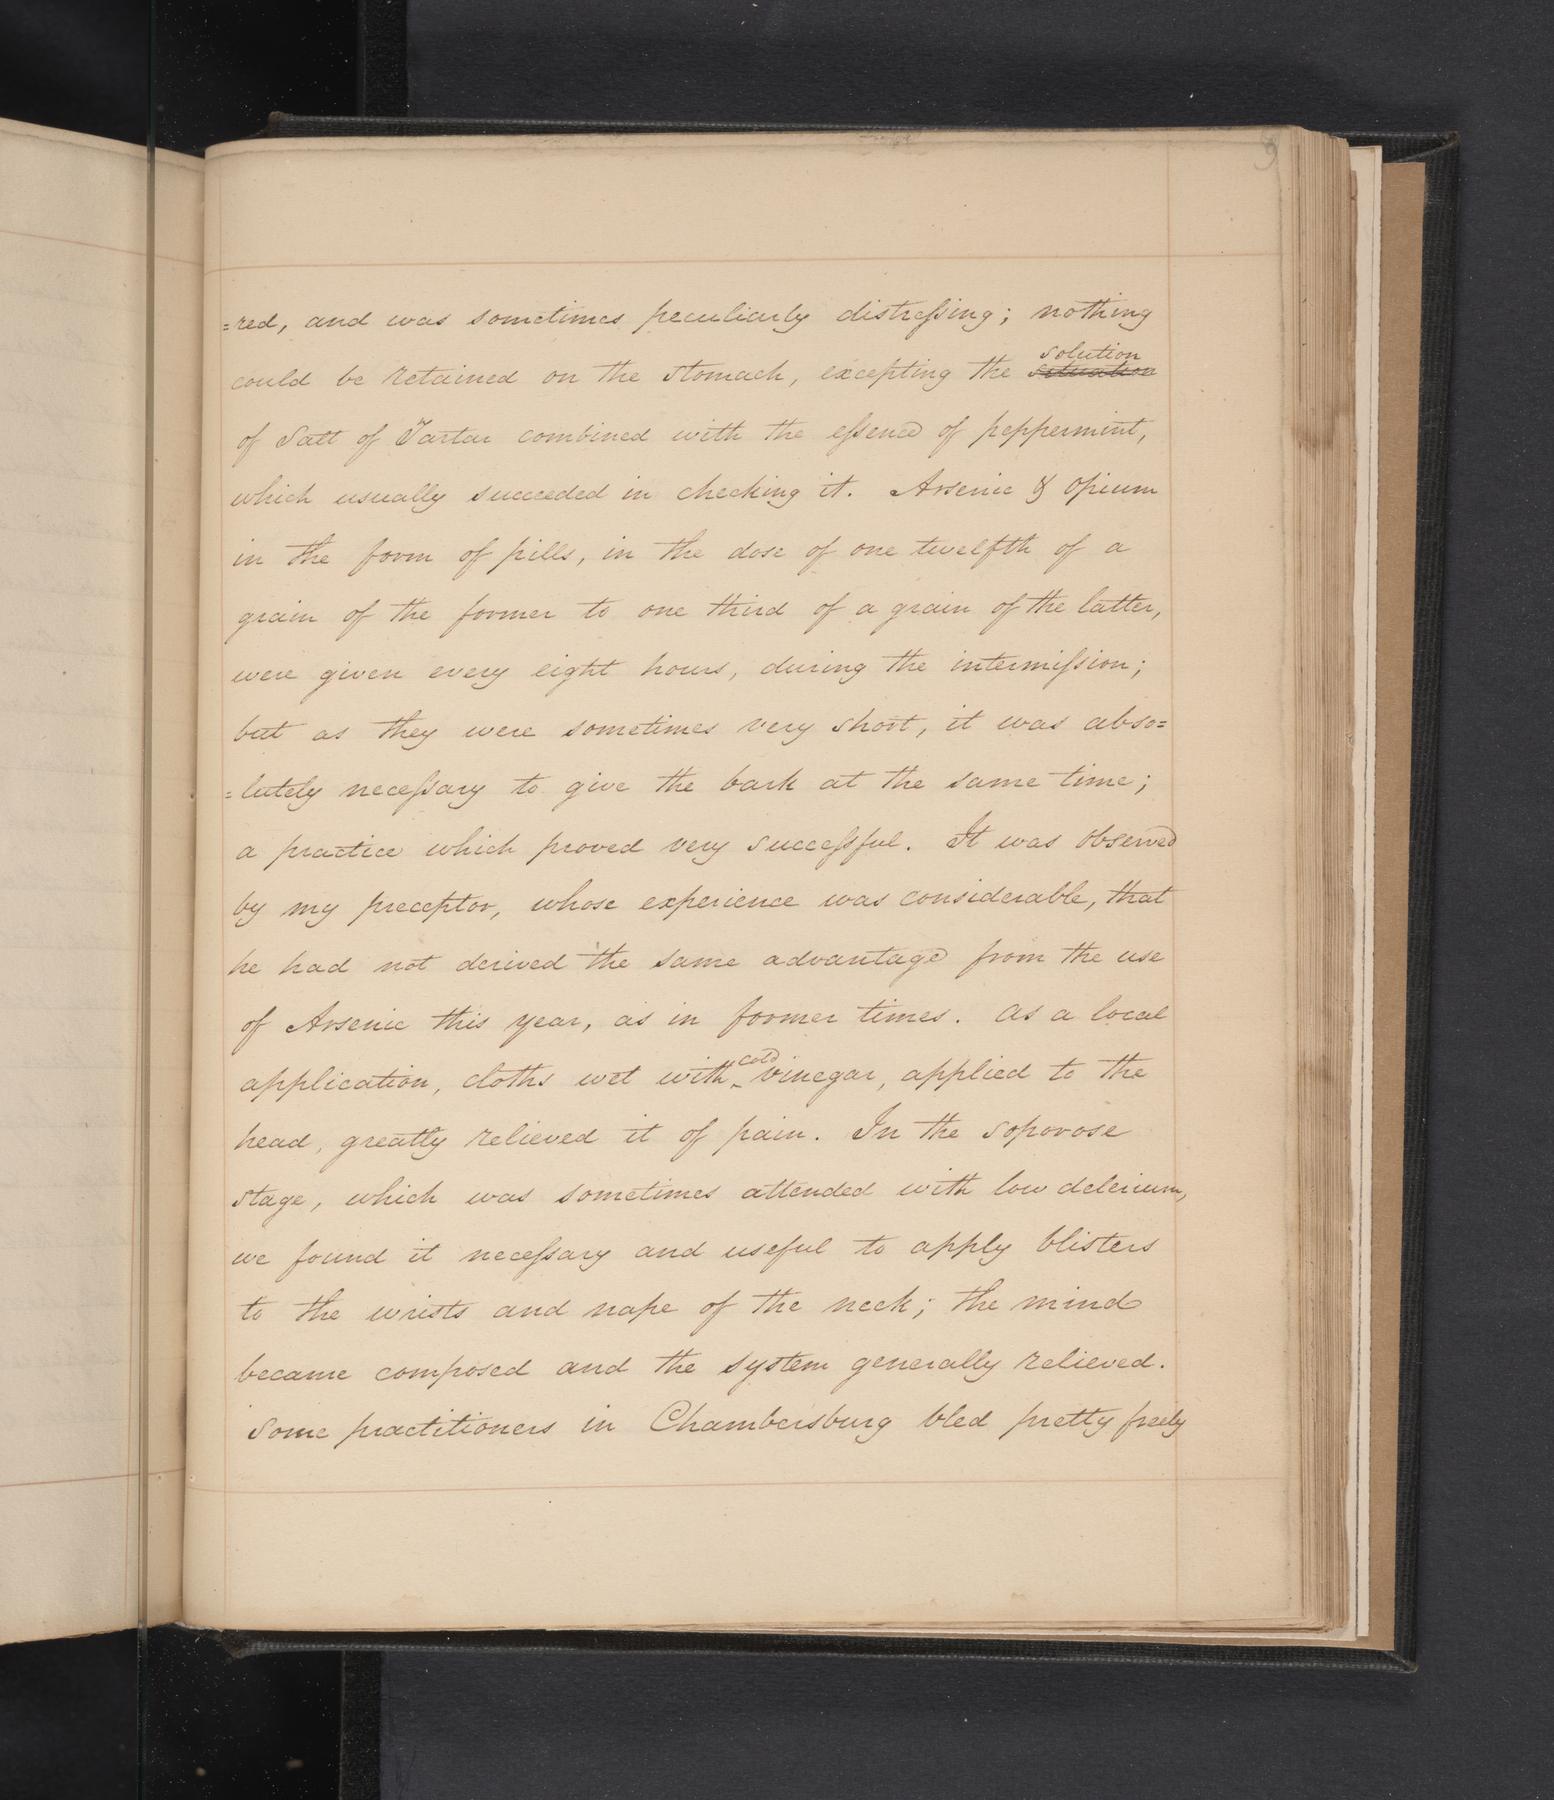 9
=red, and was sometimes peculiarly distreſsing; nothing
solution
could be retained on the stomach, excepting the situation
of Salt of Tartar combined with the eſsence of peppermint,
which usually succeeded in checking it. Arsenic & Opium
in the form of pills, in the dose of one twelfth of a
grain of the former to one third of a grain of the latter,
were given every eight hours, during the intermiſsion;
but as they were sometimes very short, it was abso=
=lutely neceſsary to give the bark at the same time;
a practice which proved very succeſsful. It was observed
by my preceptor, whose experience was considerable, that
he had not derived the same advantage from the use
of Arsenic this year, as in former times. As a local
cold
application, cloths wet with ‸ vinegar, applied to the
head, greatly relieved it of pain. In the soporose
stage, which was sometimes attended with low delerium,
we found it neceſsary and useful to apply blisters
to the wrists and nape of the neck; the mind
became composed and the system generally relieved.
Some practitioners in Chambersburg bled pretty freely